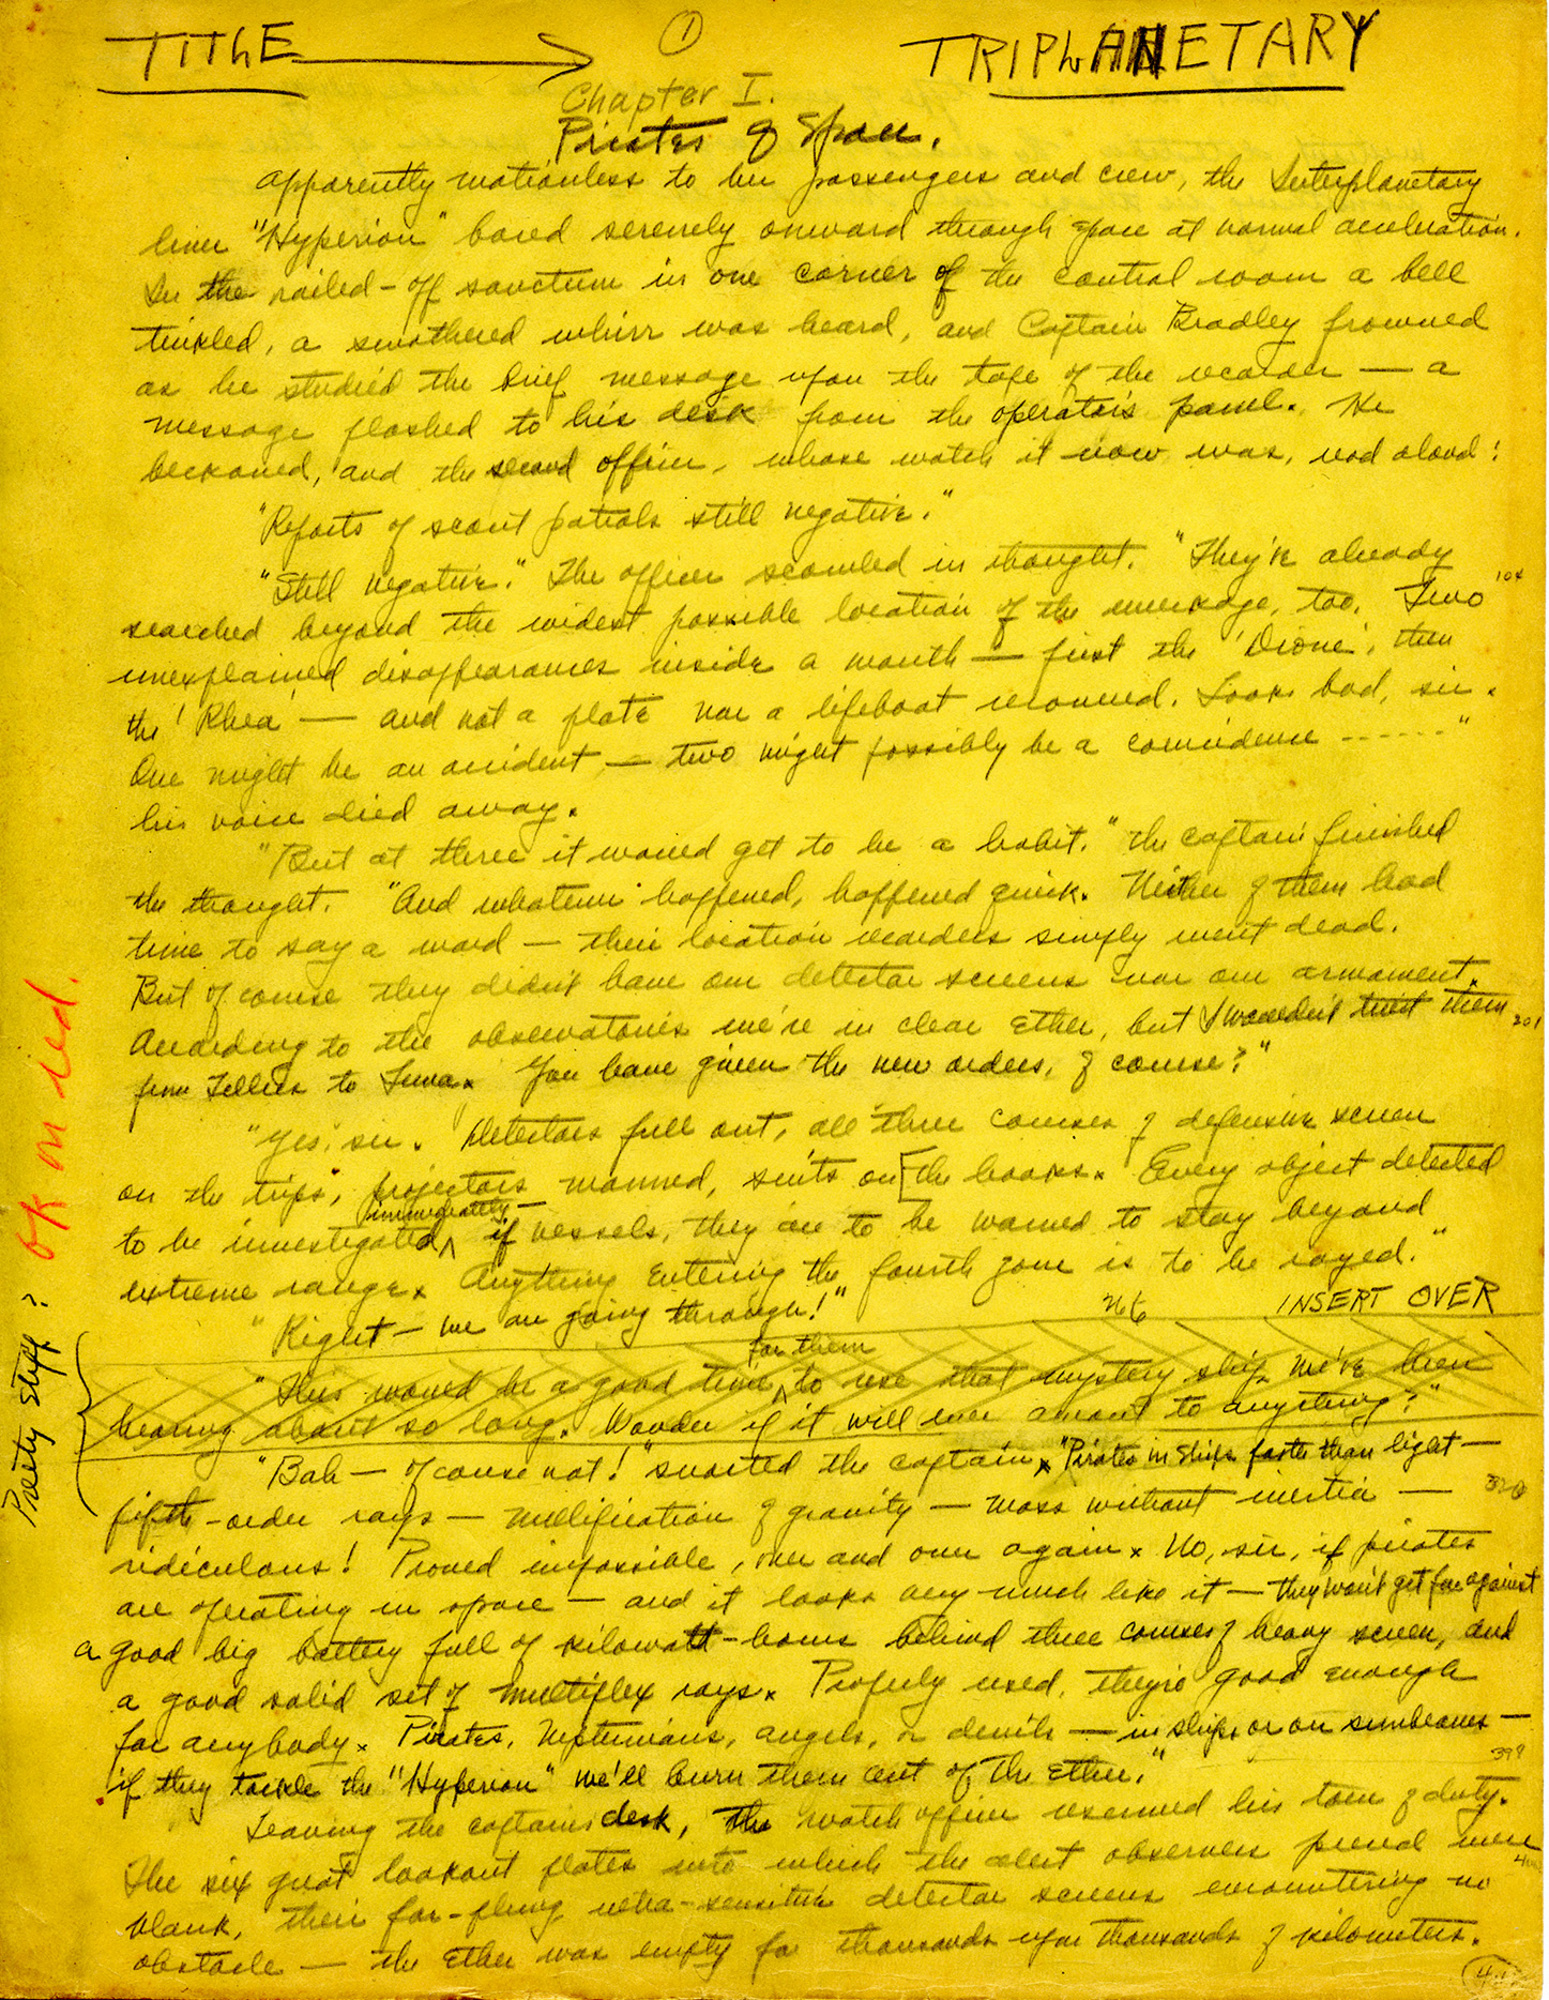 TITLE → TRIPLANETARY
1
Chapter I.
Pirates of Space.
Apparently motionless to her passengers and crew, the Interplanetary
liner "Hyperion" bored serenely onward through space at normal acceleration.
In the railed-off sanctum in one corner of the control room a bell
tinkled, a smothered whirr was heard, and Captain Bradley frowned
as he studied the brief message upon the tape of the recorder — a
message flashed to his desk from the operator's panel. He
beckoned, and the second officer, whose watch it now was, read aloud:
"Reports of scout patrols still negative."
"Still negative." The officer scowled in thought. "They've already
searched beyond the widest possible location of the wreckage, too. Two 104
unexplained disappearances inside a month — first the 'Dione', then
the 'Rhea' — and not a plate nor a lifeboat recovered. Looks bad, sir.
One might be an accident, — two might possibly be a coincidence ------"
his voice died away.
"But at three it would get to be a habit." the captain finished
the thought. "And whatever happened, happened quick. Neither of them had
time to say a word — their location recorders simply went dead.
But of course they didn't have our detector screens nor our armament.
According to the observatories we're in clear Ether, but I wouldn't trust them 201
from Tellus to Luna. You have given the new orders, of course?"
"Yes, sir. Detectors full out, all three courses of defensive screen
on the trips, projectors manned, suits on [the hooks. Every object detected
to be investigated immediately — if vessels, they are to be warned to stay beyond
extreme range. Anything entering the fourth zone is to be rayed."
"Right — we are going through!" INSERT OVER
"This would be a good time for them to use that mystery ship we've been
hearing about so long. Wonder if it will ever amount to anything?"
"Bah — of course not!" snorted the captain. "Pirates in ships faster than light —
fifth-order rays — nullification of gravity — mass without inertia —
ridiculous! Proved impossible, over and over again. No, sir, if pirates
are operating in space — and it looks very much like it — they won't get far against
a good big battery full of kilowatt-hours behind three courses of heavy screen, and
a good solid set of multiplex rays. Properly used, they're good enough
for anybody. Pirates, Neptunians, angels, or devils — in ships or on sunbeams —
if they tackle the "Hyperion" we'll burn them out of the Ether." 399
Leaving the captain's desk, the watch officer resumed his tour of duty.
The six great lookout plates into which the alert observers peered were
blank, their far-flung ultra-sensitive detector screens encountering no
obstacle — the Ether was empty for thousands upon thousands of kilometers.
OK in red.
Presty Stuff?